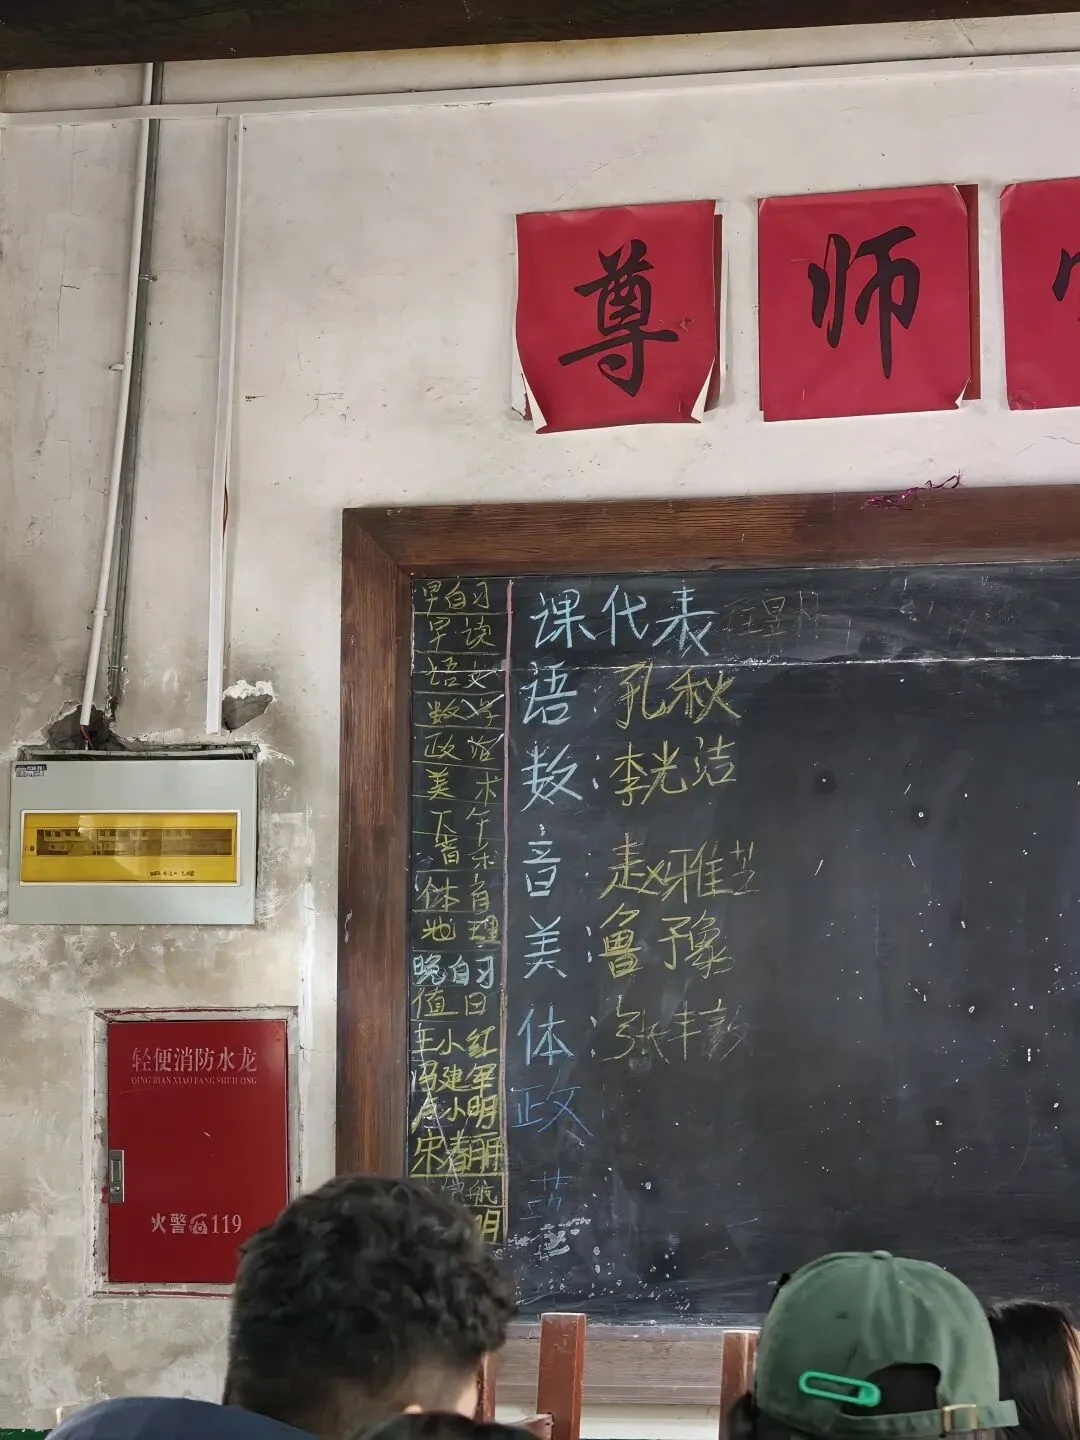 尊师
早自习
早读
语文
数学
政治
美术
下午
音乐
体育
地理
晚自习
值日
王小红
马建军
卢小明
宋春丽
航
明
课代表
语:孔秋
数:李光洁
音:赵雅芝
美:鲁予象
体:张丰彭
政
轻便消防水龙
QING BIAN XIAO FANG SHUI LONG
火警☎119